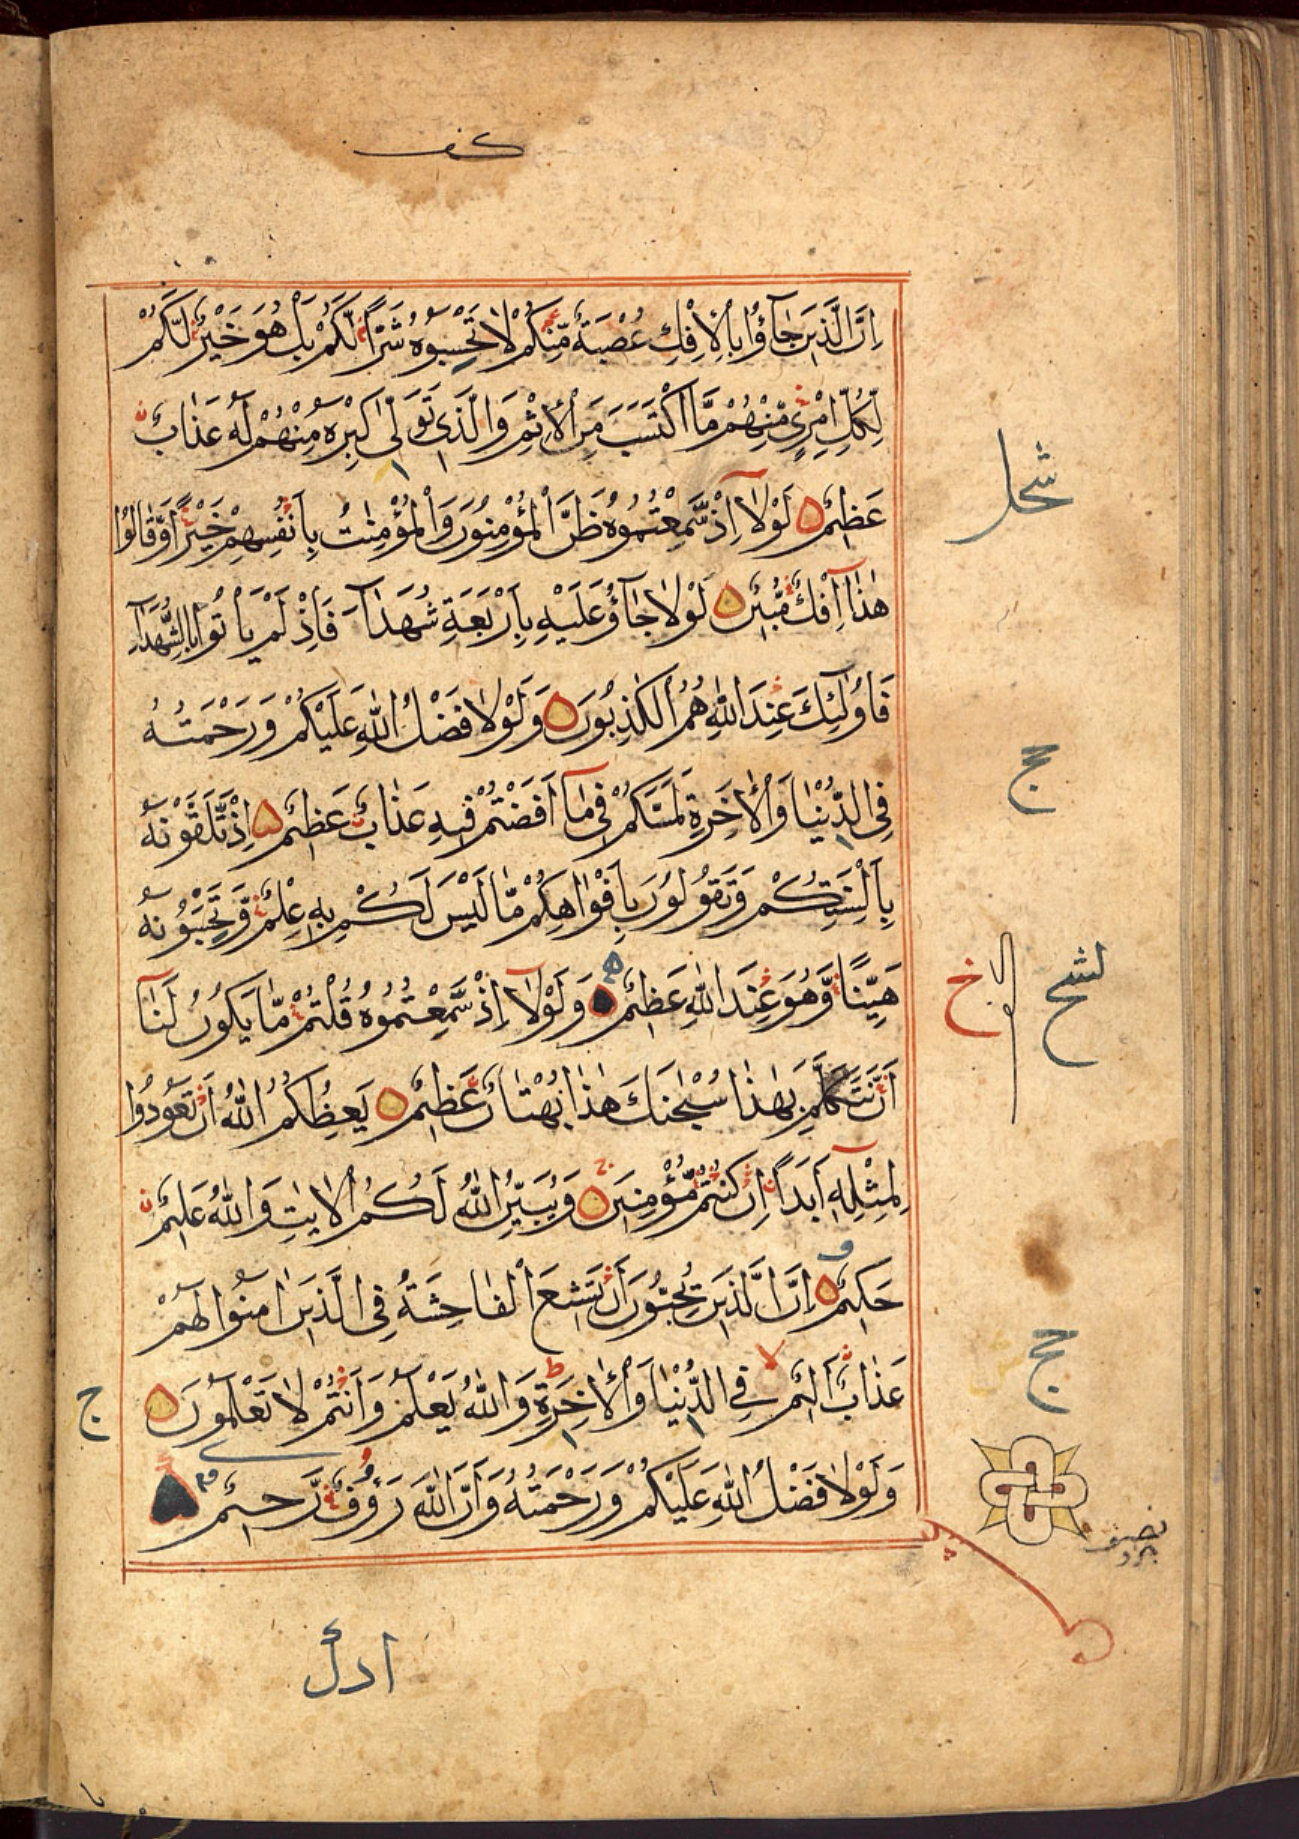 اِنَّ الَّذِينَ جَآؤُا بِالْاِفْكِ عُصْبَةٌ مِّنْكُمْ لَا تَحْسِبُوهُ شَرًّا لَّكُمْ بَلْ هُوَ خَيْرٌ لَّكُمْ
لِكُلِّ امْرِئٍ مِّنْهُمْ مَّا اكْتَسَبَ مِنَ الْاِثْمِ وَالَّذِي تَوَلّٰى كِبْرَهُ مِنْهُمْ لَهُ عَذَابٌ
عَظِيمٌ لَوْلَآ اِذْ سَّمِعْتُمُوهُ ظَنَّ الْمُؤْمِنُونَ وَالْمُؤْمِنٰتُ بِاَنْفُسِهِمْ خَيْرًا وَّقَالُوْا
هٰذَآ اِفْكٌ مُّبِينٌ لَوْلَا جَآؤُ عَلَيْهِ بِاَرْبَعَةِ شُهَدَآءَ فَاِذْ لَمْ يَاْتُوا بِالشُّهَدَآءِ
فَاُولٰٓئِكَ عِنْدَ اللّٰهِ هُمُ الْكٰذِبُونَ وَلَوْلَا فَضْلُ اللّٰهِ عَلَيْكُمْ وَرَحْمَتُهُ
فِي الدُّنْيَا وَالْاٰخِرَةِ لَمَسَّكُمْ فِي مَآ اَفَضْتُمْ فِيهِ عَذَابٌ عَظِيمٌ اِذْ تَّلَقَّوْنَهُ
بِاَلْسِنَتِكُمْ وَتَقُولُونَ بِاَفْوَاهِكُمْ مَّا لَيْسَ لَكُمْ بِهِ عِلْمٌ وَّتَحْسِبُونَهُ
هَيِّنًا وَّهُوَ عِنْدَ اللّٰهِ عَظِيمٌ وَلَوْلَآ اِذْ سَّمِعْتُمُوهُ قُلْتُمْ مَّا يَكُونُ لَنَآ
اَنْ نَّتَكَلَّمَ بِهٰذَا سُبْحٰنَكَ هٰذَا بُهْتَانٌ عَظِيمٌ يَعِظُكُمُ اللّٰهُ اَنْ تَعُودُوا
لِمِثْلِهٖٓ اَبَدًا اِنْ كُنْتُمْ مُّؤْمِنِينَ وَيُبَيِّنُ اللّٰهُ لَكُمُ الْاٰيٰتِ وَاللّٰهُ عَلِيمٌ
حَكِيمٌ اِنَّ الَّذِينَ يُحِبُّونَ اَنْ تَشِيعَ الْفَاحِشَةُ فِي الَّذِينَ اٰمَنُوا لَهُمْ
عَذَابٌ اَلِيمٌ فِي الدُّنْيَا وَالْاٰخِرَةِ وَاللّٰهُ يَعْلَمُ وَاَنْتُمْ لَا تَعْلَمُونَ
وَلَوْلَا فَضْلُ اللّٰهِ عَلَيْكُمْ وَرَحْمَتُهُ وَاَنَّ اللّٰهَ رَؤُفٌ رَّحِيمٌ